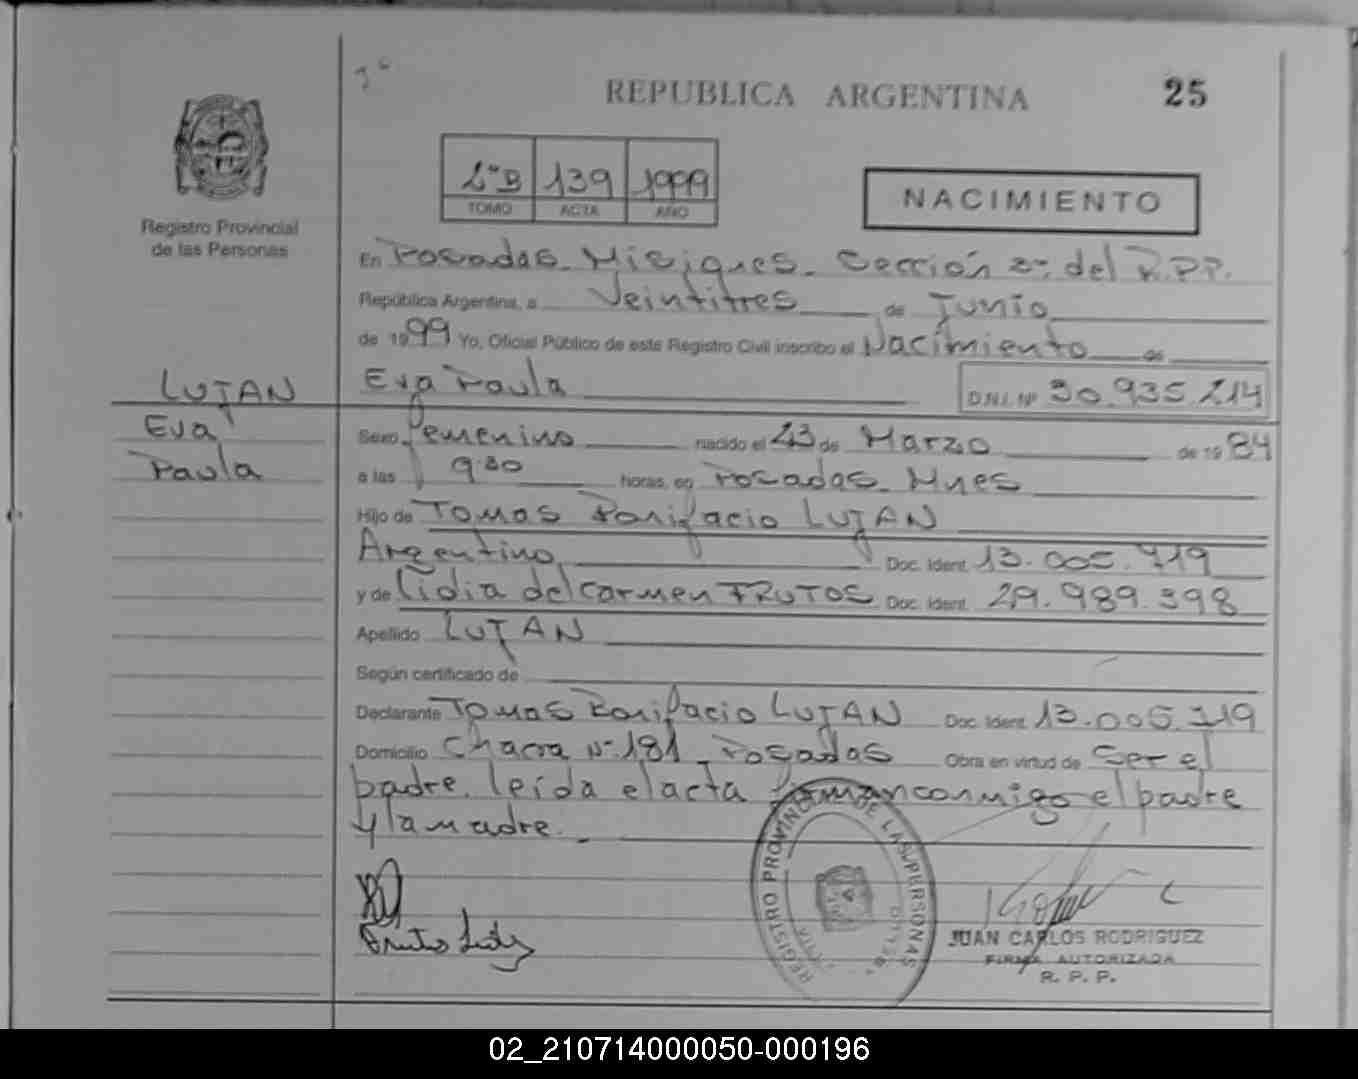 REPUBLICA ARGENTINA 25
2ºB 139 1999
TOMO ACTA AÑO
NACIMIENTO
Registro Provincial
de las Personas
En Posadas - Misiones - Sección 2º del R.P.P.
República Argentina, a Veintitres de Junio
de 1999 Yo, Oficial Público de este Registro Civil inscribo el Nacimiento de
LUJAN
Eva
Paula
Eva Paula D.N.I. Nº 30.935.214
Sexo femenino nacido el 23 de Marzo de 1984
a las 9.30 horas, en Posadas - Mnes
Hijo de Tomas Bonifacio LUJAN
Argentino Doc. Ident. 13.005.719
y de Lidia del Carmen FRUTOS Doc. Ident. 29.989.398
Apellido LUJAN
Según certificado de
Declarante Tomas Bonifacio LUJAN Doc. Ident. 13.005.719
Domicilio Chacra Nº 181 - Posadas Obra en virtud de Ser el
padre. leída el acta firman conmigo el padre
y la madre. -
Frutos Lidia
REGISTRO PROVINCIAL DE LAS PERSONAS
JUAN CARLOS RODRIGUEZ
FIRMA AUTORIZADA
R. P. P.
02_210714000050-000196